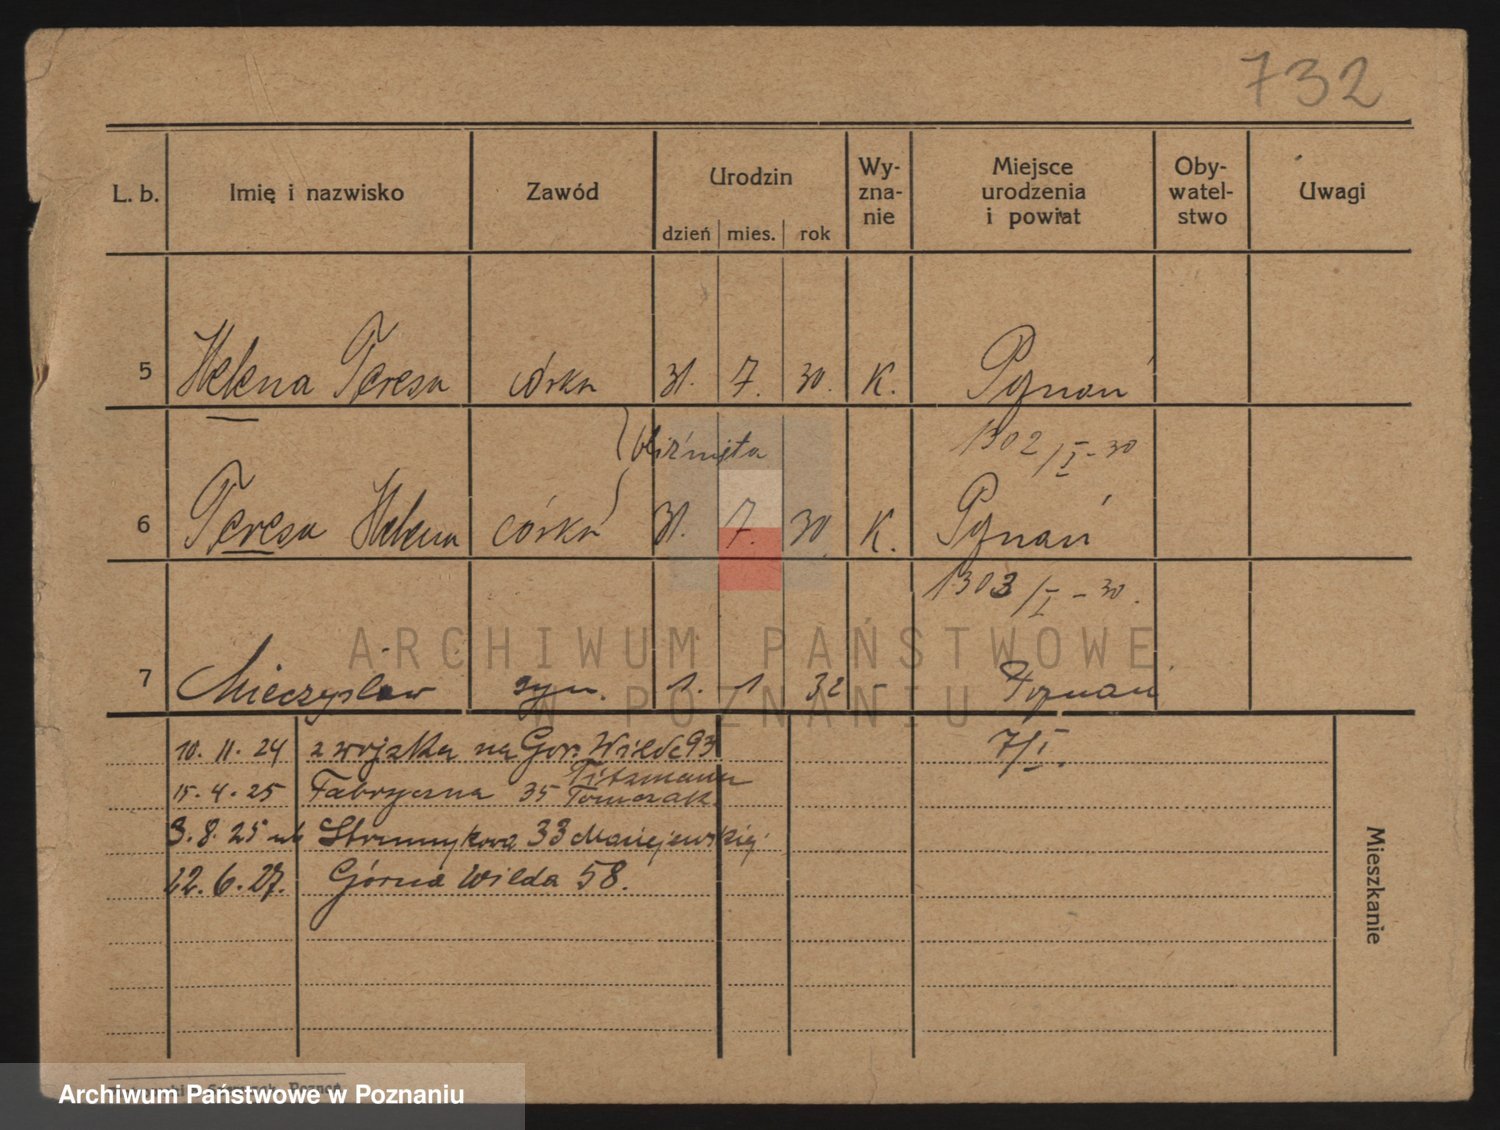 732
L. b. Imię i nazwisko Zawód Urodzin dzień mies. rok Wy-zna-nie Miejsce urodzenia i powiat Oby-watel-stwo Uwagi
5 Helena Teresa córka 31. 7. 30. K. Poznań
bliźnięta 1302/I-30
6 Teresa Helena córka 31. 7. 30. K. Poznań
1303/I-30.
7 Mieczysław syn. 1. 1 32 - Poznań
7/I.
10. 11. 24 z wojska na Gór. Wilda 93
15. 4. 25 Fabryczna 35 Tomczak
3. 8. 25 33
22. 6. 27. Górna Wilda 58.
Mieszkanie
ARCHIWUM PAŃSTWOWE
W POZNANIU
Archiwum Państwowe w Poznaniu